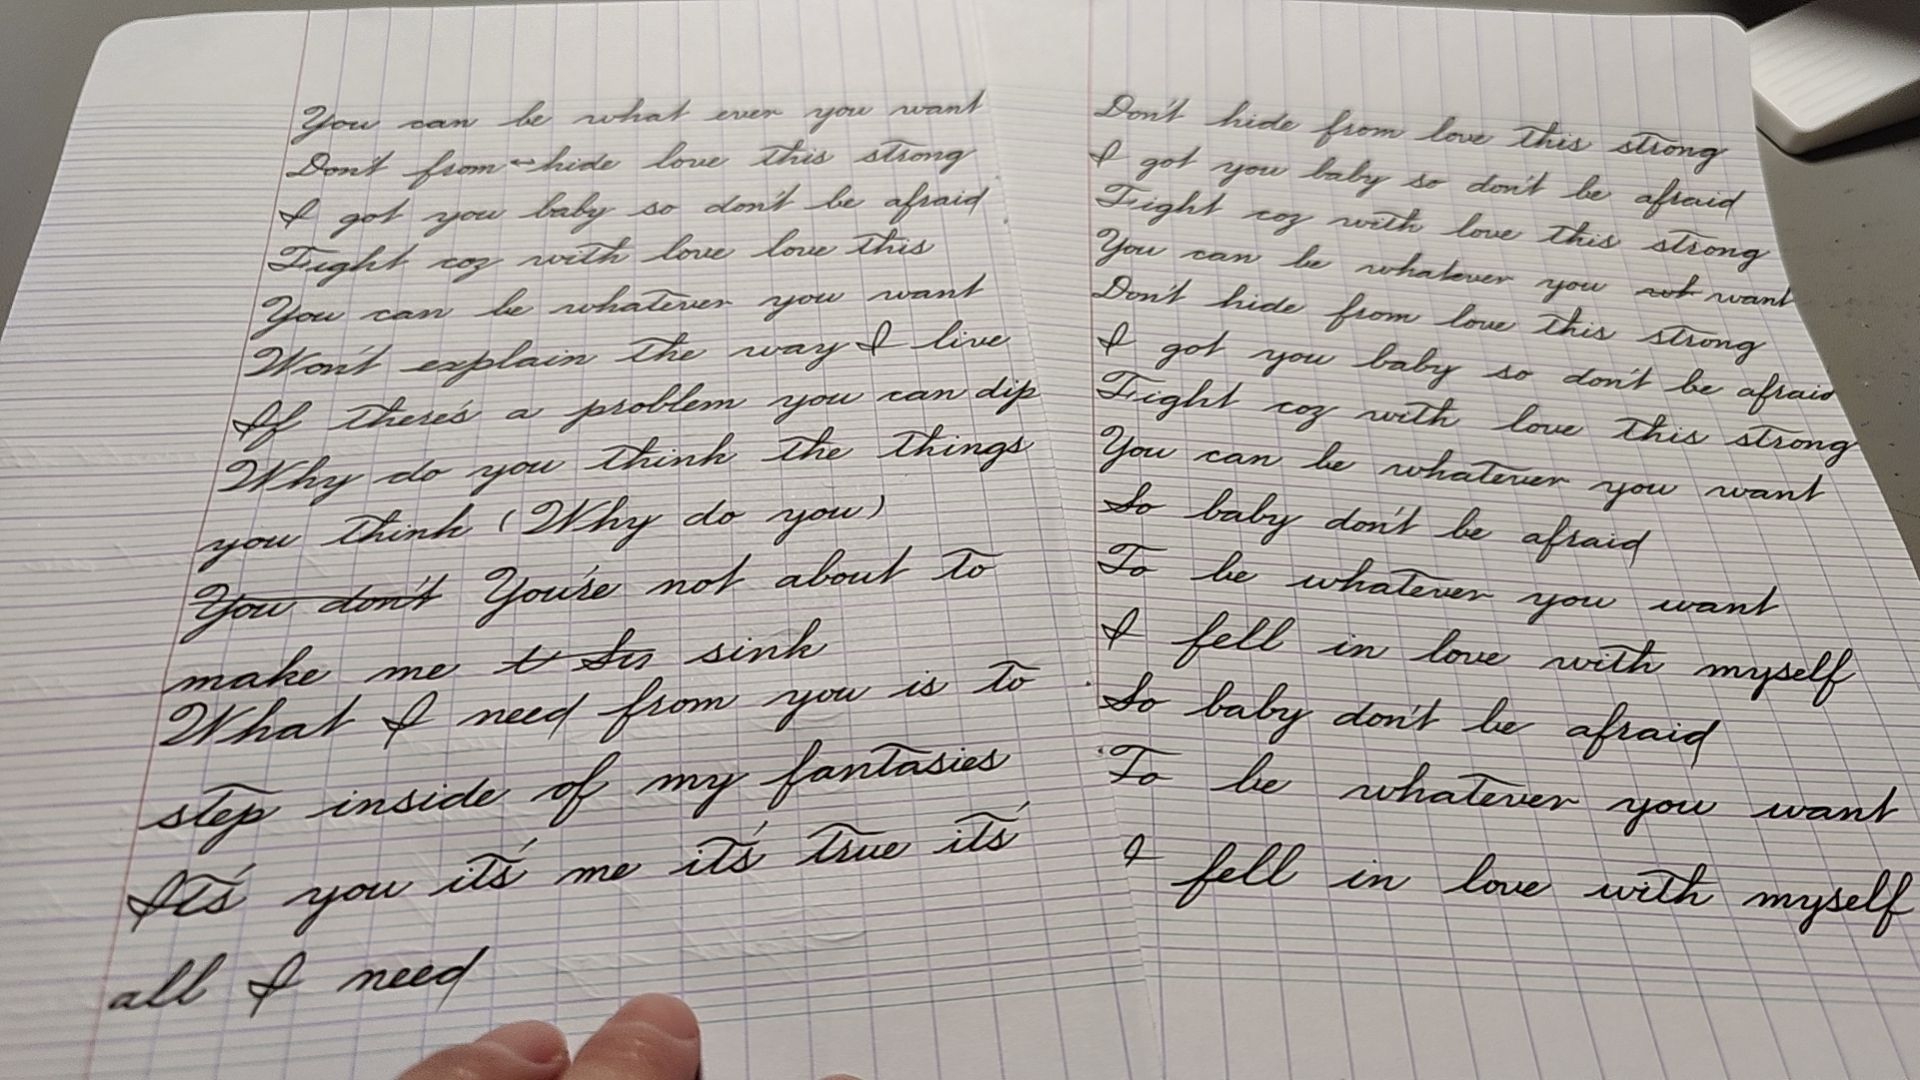 You can be what ever you want
Don't from ↔ hide love this strong
I got you baby so don't be afraid
Fight coz with love love this
You can be whatever you want
Won't explain the way I live
If there's a problem you can dip
Why do you think the things
you think (Why do you)
You don't You're not about to
make me sink
What I need from you is to
step inside of my fantasies
It's you it's me it's true it's
all I need
Don't hide from love this strong
I got you baby so don't be afraid
Fight coz with love this strong
You can be whatever you want
Don't hide from love this strong
I got you baby so don't be afraid
Fight coz with love this strong
You can be whatever you want
So baby don't be afraid
To be whatever you want
I fell in love with myself
So baby don't be afraid
To be whatever you want
I fell in love with myself